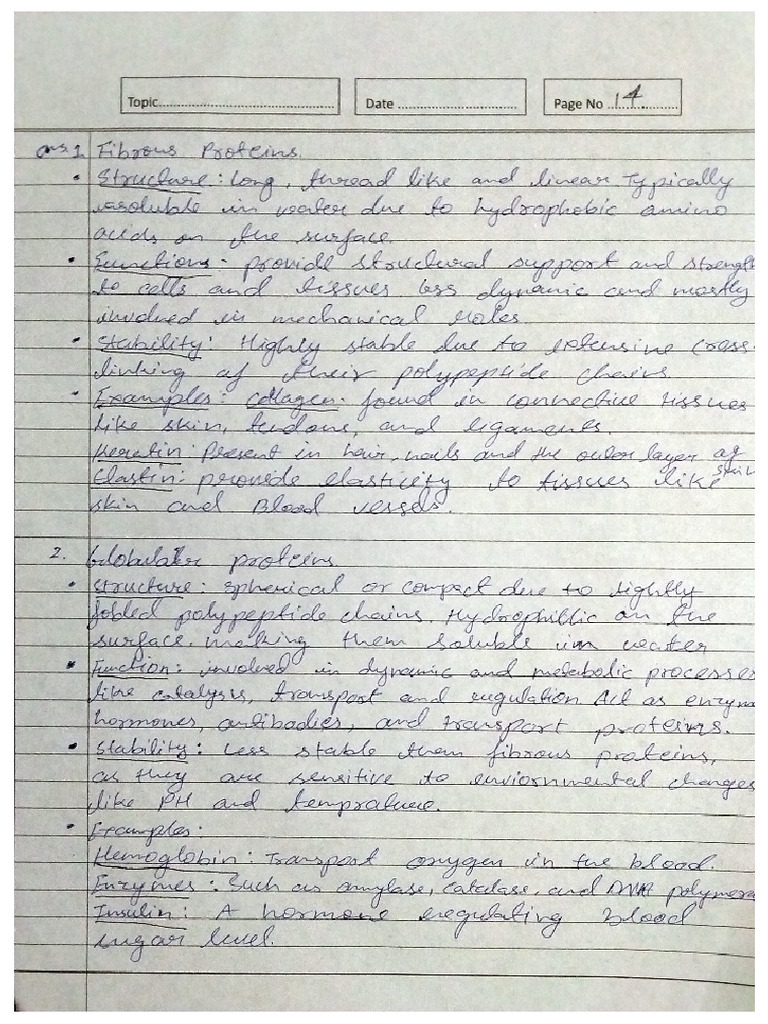 Topic..............................................
Date ..................................
Page No ..14..............
Ans.1. Fibrous Proteins.
• Structure: Long, thread like and linear. Typically
insoluble in water due to hydrophobic amino
acids on the surface.
• Functions: provide structural support and strength
to cells and tissues less dynamic and mostly
involved in mechanical roles.
• Stability: Highly stable due to extensive cross-
linking of their polypeptide chains.
• Examples: collagen: found in connective tissues
like skin, tendons, and ligaments.
Keratin: Present in hair, nails and the outer layer of skin
Elastin: provide elasticity to tissues like
skin and Blood vessels.
2. Globular proteins.
• Structure: spherical or compact due to tightly
folded polypeptide chains. Hydrophillic on the
surface. making them soluble in water
• Function: involved in dynamic and metabolic processes
like catalysis, transport and regulation. Act as enzym
hormones, antibodies, and transport proteins.
• Stability: Less stable than fibrous proteins,
as they are sensitive to enviornmental changes
like PH and temprature.
• Examples:
Hemoglobin: Transport oxygen in the blood.
Enzymes: Such as amylase, catalase, and DNA polymera
Insulin: A hormone regulating blood
sugar level.